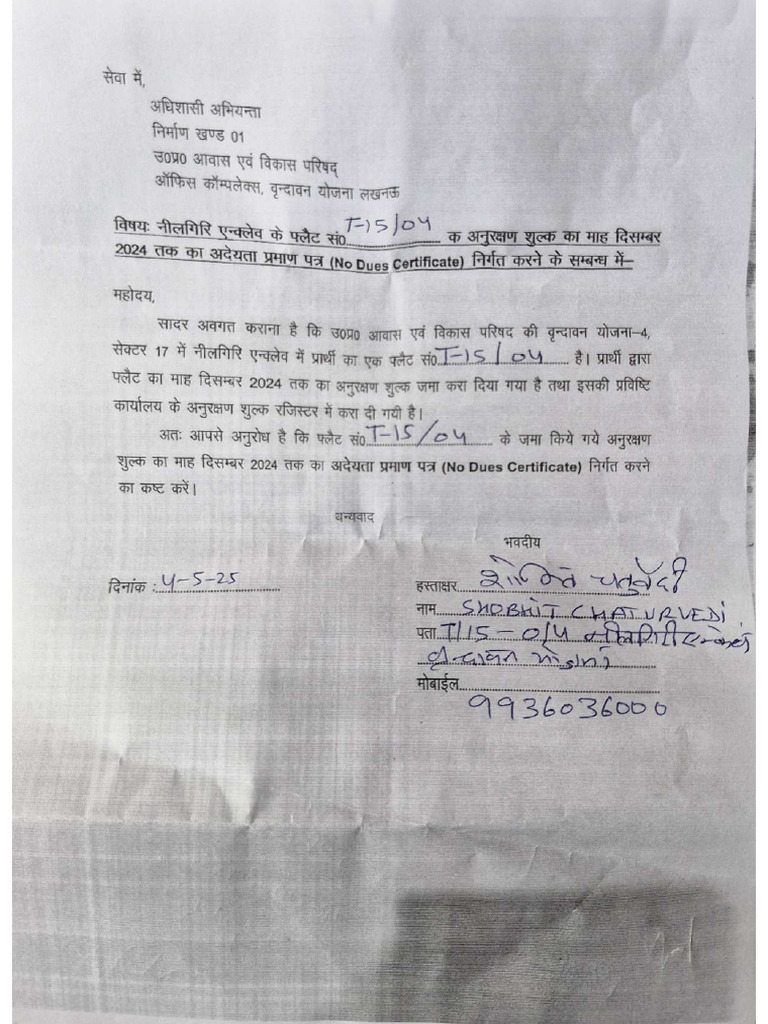 सेवा में,
अधिशासी अभियन्ता
निर्माण खण्ड 01
उ0प्र0 आवास एवं विकास परिषद्
ऑफिस कॉम्पलेक्स, वृन्दावन योजना लखनऊ
विषयः नीलगिरि एन्क्लेव के फ्लैट सं0 T-15/04 क अनुरक्षण शुल्क का माह दिसम्बर
2024 तक का अदेयता प्रमाण पत्र (No Dues Certificate) निर्गत करने के सम्बन्ध में–
महोदय,
सादर अवगत कराना है कि उ0प्र0 आवास एवं विकास परिषद की वृन्दावन योजना–4,
सेक्टर 17 में नीलगिरि एन्क्लेव में प्रार्थी का एक फ्लैट सं0 T-15/04 है। प्रार्थी द्वारा
फ्लैट का माह दिसम्बर 2024 तक का अनुरक्षण शुल्क जमा करा दिया गया है तथा इसकी प्रविष्टि
कार्यालय के अनुरक्षण शुल्क रजिस्टर में करा दी गयी है।
अतः आपसे अनुरोध है कि फ्लैट सं0 T-15/04 के जमा किये गये अनुरक्षण
शुल्क का माह दिसम्बर 2024 तक का अदेयता प्रमाण पत्र (No Dues Certificate) निर्गत करने
का कष्ट करें।
धन्यवाद
भवदीय
दिनांक : 4-5-25
हस्ताक्षर शोभित चतुर्वेदी
नाम SHOBHIT CHATURVEDI
पता T/15-04 नीलगिरी एन्क्लेव
वृन्दावन योजना
मोबाईल
9936036000